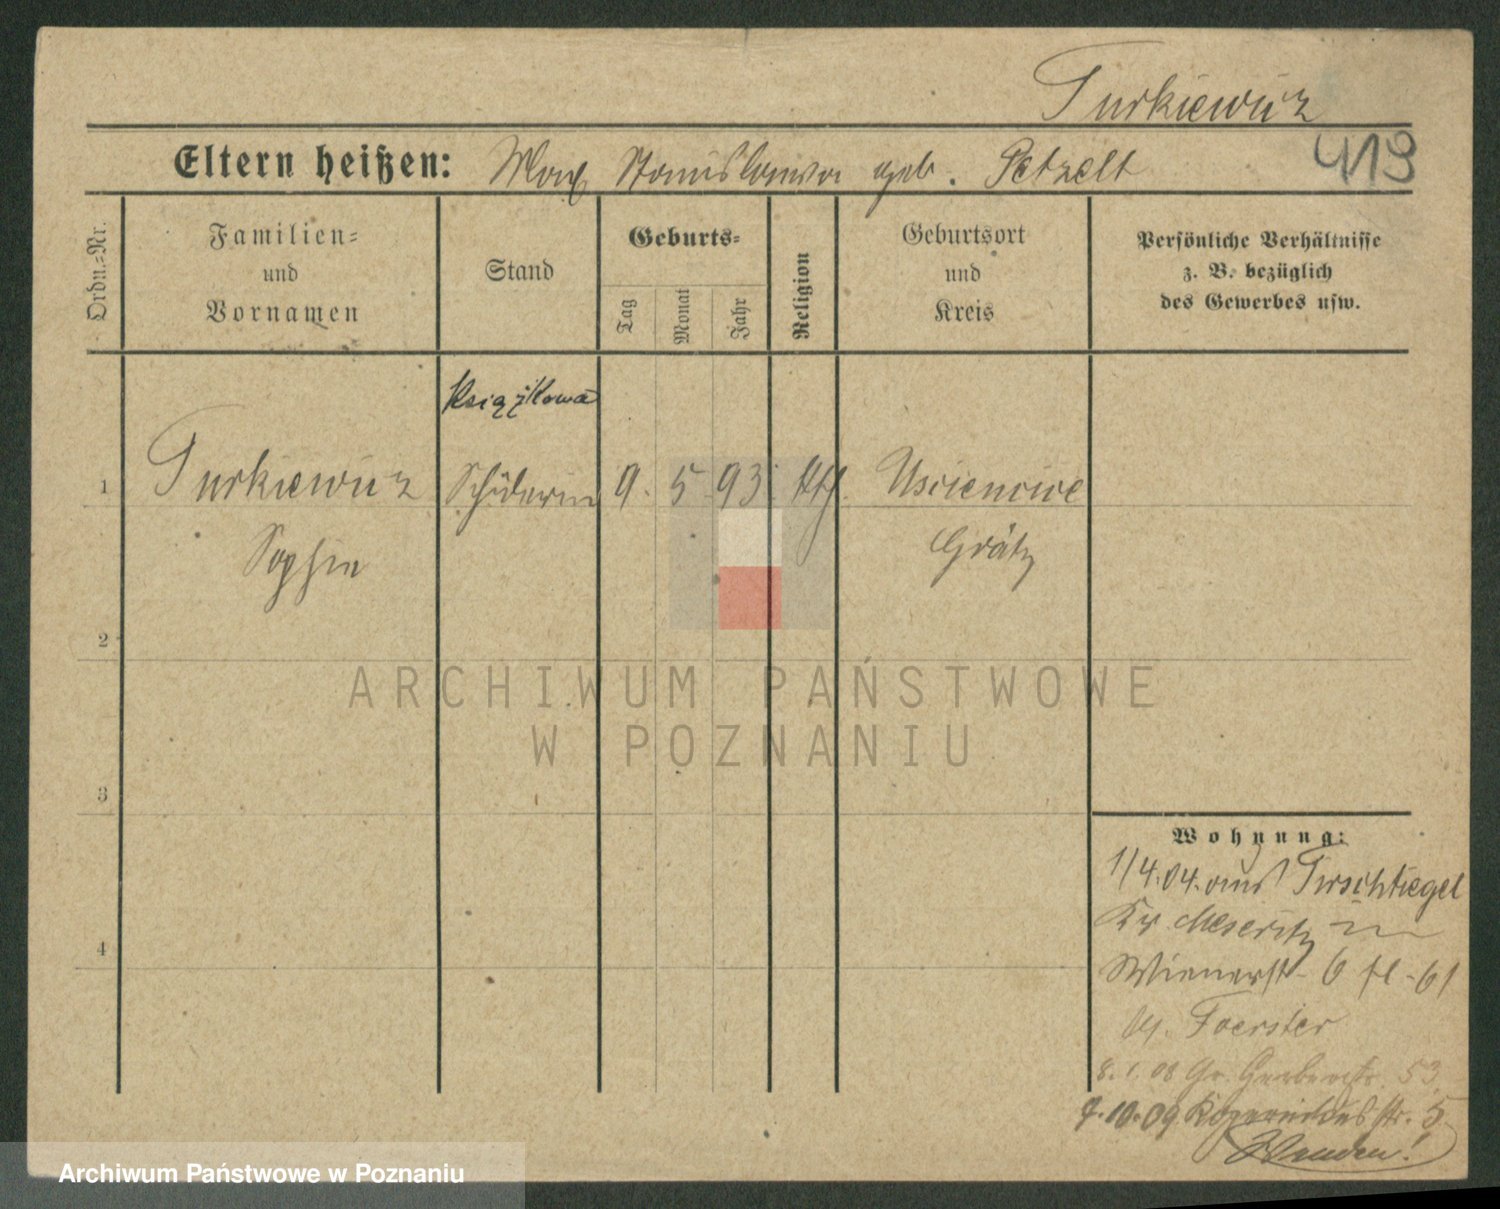 Turkiewicz
Eltern heißen: Max Stanislawa geb. Petzelt
413
Ordn.-Nr.
Familien-
und
Vornamen
Stand
Geburts-
Tag
Monat
Jahr
Religion
Geburtsort
und
Kreis
Persönliche Verhältnisse
z. B. bezüglich
des Gewerbes usw.
Książkowa
1 Turkiewicz Schülerin 9. 5. 93. kth. Usciencice
Sophie Grätz
2
3
4
ARCHIWUM PAŃSTWOWE
W POZNANIU
Wohnung:
1/4.04. aus Tirschtiegel
Kr Meseritz in
Wienerst. 6
Foerster
8.1.08 Gr. Gerberstr. 53.
7.10.09 Kopernikusstr. 5
Wenden!
Archiwum Państwowe w Poznaniu